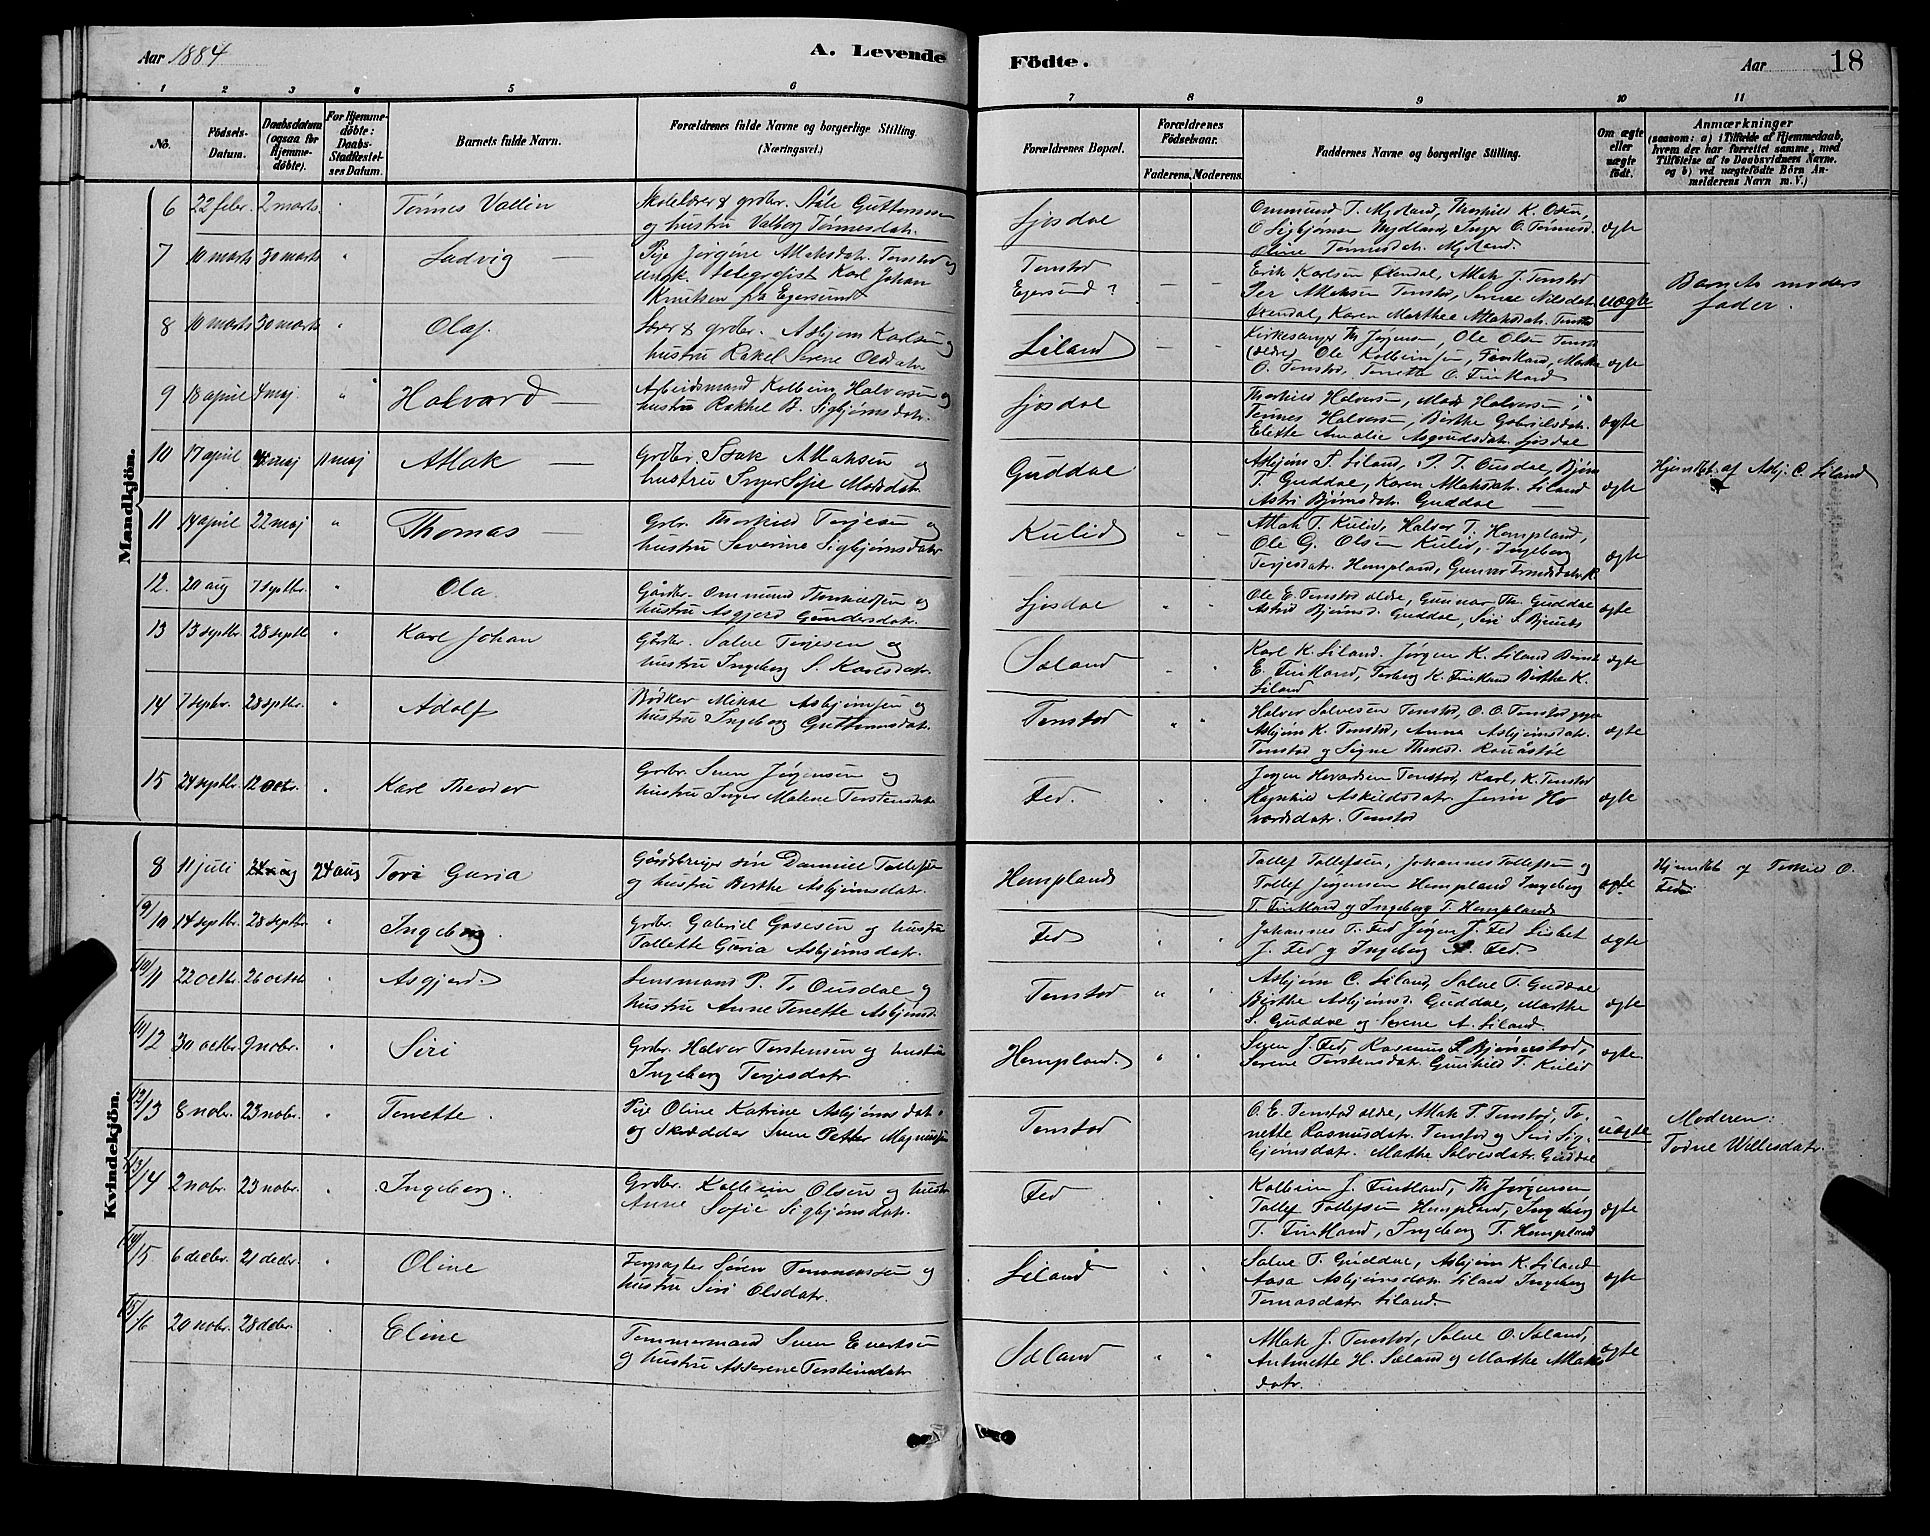 Aar 1884
A. Levende
Födte.
Aar
18
1 2 3 4 5 6 7 8 9 10 11
No.
Födsels-Datum.
Daabsdatum (ogsaa for Hjemmedöbte).
For Hjemmedöbte: Daabs-Stadfæstelses Datum.
Barnets fulde Navn.
Forældrenes fulde Navne og borgerlige Stilling. (Næringsvei.)
Forældrenes Bopæl.
Forældrenes Födselsaar.
Faderens. Moderens.
Faddernes Navne og borgerlige Stilling.
Om ægte eller uægte födt.
Anmærkninger
(saasom: a) i Tilfælde af Hjemmedaab, hvem der har forrettet samme, med Tilföielse af to Daabsvidners Navne, og b) ved uægtefödte Börn Anmelderens Navn m. V.)
Mandkjön.
6 22 febr. 2 marts " Tønnes Vallin
Skolelærer & grdbr. Ståle Guttormsen
og hustru Valborg Tønnesdatr.
Ljosdal
Ommund T. Mydland, Thorkild K. Osen,
O Sigbjørnsen Mydland, Inger O. Tønnesd.
Oline Tønnesdatr. Mydland
ægte
7 10 marts 30 marts " Ludvig
Pige Jørgine Atlaksdatr. Tonstad og
ungk. telegrafist Karl Johan
Knutsen fra Egersund
Tonstad
Egersund?
Erik Karlsen Øxendal, Atlak J. Tonstad
Per Atlaksen Tonstad, Serine Nilsdatr.
Øxendal, Karen Marthea Atlaksdatr. Tonstad
uægte
Barnets moders fader.
8 10 marts 30 marts " Olaf
Lærer & grdbr. Asbjørn Karlsen og
hustru Rakel Serene Olsdatr
Liland
Kirkesanger Th Jørgensen, Ole Olsen Tonstad
(ældre) Ole Kolbeinsen, Finkland, Marthe
O. Tonstad, Tonette O. Finkland
ægte
9 18 april 4 maj " Halvard
Arbeidsmand Kolbein Halvorsen og
hustru Rakhel B. Sigbjørnsdatr.
Ljosdal
Thorkild Halvorsen, Mads Halvorsen,
Tønnes Halvorsen, Birthe Gabrielsdatr.
Elette Amalie Asgrudsdatr. Ljosdal
ægte
10 17 april 4 maj 11 maj Atlak
Grdbr. Isak Atlaksen og
hustru Inger Sofie Madsdatr.
Guddal
Asbjørn S. Liland, P. T. Ousdal, Bjørn
T. Guddal, Karen Atlaksdatr. Liland
Astri Bjørnsdatr. Guddal
ægte
Hjemdbt. af Asbj. C. Liland
11 14 april 22 maj " Thomas
Grbr. Thorkild Terjesen og
hustru Severine Sigbjørnsdatr
Kulid
Atlak T. Kulid, Halvor T. Hompland,
Ole G. Olsen Kulid, Ingeborg
Terjesdatr. Hompland, Gunvor Trondsdatr. K
ægte
12. 20 aug 7 septbr. " Ola
Gårdbr. Ommund Thorkildsen og
hustru Asgjerd Gundersdatr.
Ljosdal
Ole E. Tonstad ældre, Gunnar Th. Guddal
Astrid Bjørnsd. Guddal, Siri S Bjunes
ægte
13 13 septbr. 28 septbr " Karl Johan
Gårdbr. Salve Terjesen og
hustru Ingeborg S. Karlsdatr.
Sæland
Karl K. Liland. Jørgen K. Liland Bernt
E. Finkland, Torborg K. Finkland Birthe K.
Liland
ægte
14 7 septbr. 28 septbr. " Adolf
Bødker Mikal Asbjørnsen og
hustru Ingeborg Guttormsdatr.
Tonstad
Halvor Salvesen Tonstad, O. O. Tonstad yngre
Asbjørn K. Tonstad, Anna Asbjørnsdatr.
Tonstad og Signe Theresd. Rauåstøl
ægte
15 24 septbr. 12 octbr. " Karl Theodor
Grbr. Sven Jørgensen og
hustru Inger Malene Torstensdatr
Fed.
Jørgen Hovardsen Tonstad, Karl K. Tonstad
Ragnhild Askildsdatr. Jorin Ho
vardsdatr. Tonstad
ægte
Kvindekjön.
8 11 juli 24 aug 24 aug Tori Guria
Gårdsbruger søn Danniel Tollefsen
og hustru Berthe Asbjørnsdatr.
Hompland
Tollef Tollefsen, Johannes Tollefsen og
Tollef Jørgensen Hompland Ingeborg
T. Finkland og Ingeborg T. Hompland
ægte
Hjemdbt. af Torkild O. Fed.
(9)/10 14 septbr. 28 septbr " Ingeborg.
Grdbr. Gabriel Gosesen og hustru
Tollette Guria Asbjørnsdatr.
Fed
Johannes T. Fed Jørgen J. Fed Lisbet
J. Fed og Ingeborg A. Fed.
ægte
(10)/11 22 octbr. 26 octobr " Asgjerd.
Lensmand P. T. Ousdal og
hustru Anne Tonette Asbjørnsd.
Tonstad
Asbjørn C. Liland, Salve T. Guddal
Birthe Asbjørnsd. Guddal, Marthe
S. Guddal og Serene A. Liland.
ægte
(11)/12 30 octbr. 9 nobr. " Siri
Grdbr. Halvor Torstensen og hustru
Ingeborg Terjesdatr.
Hompland.
Sven J. Fed, Rasmus S. Bjørnestad,
Serene Torstensdatr. Gunhild T. Kulid
ægte.
(12)/13 8 nobr. 23 nobr. " Tonette.
Pige Oline Katrine Asbjørnsdatr.
og Skrædder Sven Petter Magnussen
Tonstad
O. E. Tonstad ældre, Atlak T. Tonstad, To-
nette Rasmusdatr. Tonstad og Siri Sig-
bjørnsdatr. Marthe Salvesdatr. Guddal
uægte
Moderen:
Todne Willesdatr.
(13)/14 2 nobr. 23 nobr. " Ingeborg.
Grdbr. Kolbein Olsen og hustru
Anne Sofie Sigbjørnsdatr.
Fed
Kolbein J. Finkland, Th Jørgensen
Tollef Tollefsen Hompland, Ingeborg
T. Finkland, Ingeborg T. Hompland
ægte
(14)/15 6 decbr. 21 decbr. " Oline
Forpagter Søren Tommessen og
hustru Siri Olsdatr.
Liland
Salve T. Guddal, Asbjørn K. Liland
Aasa Asbjørnsdatr. Liland Ingeborg
Tomasdatr. Liland.
ægte
(15)/16 20 nobr. 28 debr. " Eline
Tømmermand Sven Evertsen
og hustru Asserene Torsteinsdatr
Sæland
Atlak J. Tonstad, Salve O. Sæland,
Antonette H. Sæland og Marthe Atlaks
datr.
ægte